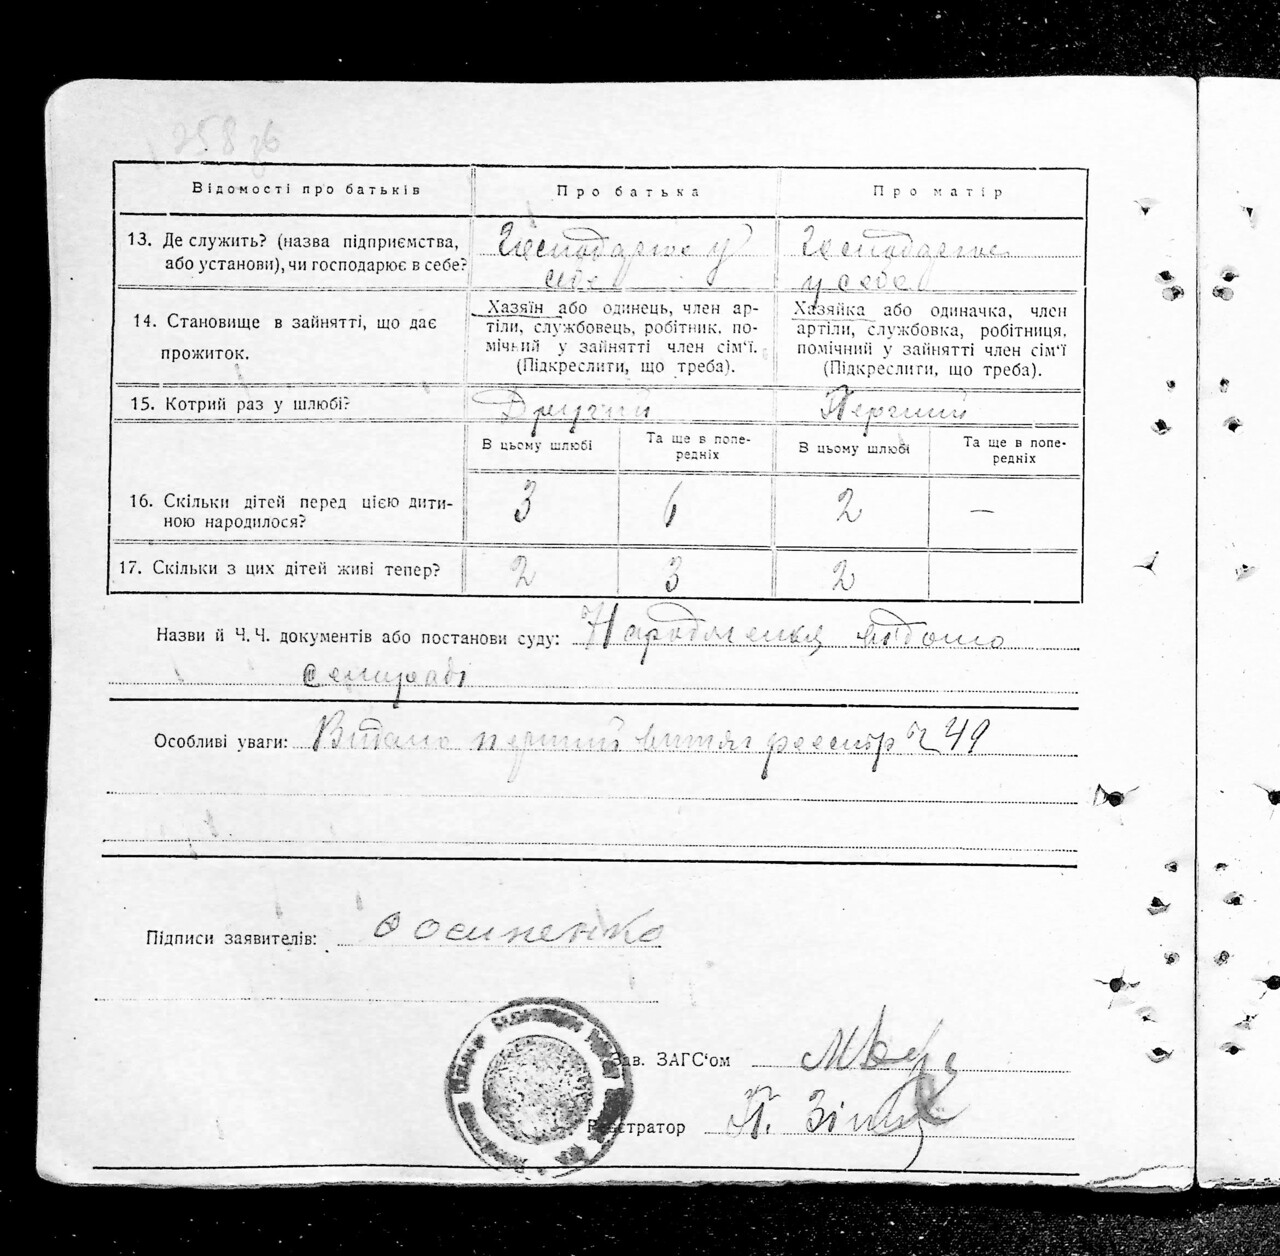 258
Відомості про батьків Про батька Про матір
13. Де служить? (назва підприємства, або установи), чи господарює в себе?
Господарює у
себе
Господарює
у себе
14. Становище в зайнятті, що дає
прожиток.
Хазяїн або одинець, член ар-
тіли, службовець, робітник, по-
мічний у зайнятті член сім'ї.
(Підкреслити, що треба).
Хазяйка або одиначка, член
артіли, службовка, робітниця,
помічний у зайнятті член сім'ї
(Підкреслити, що треба).
15. Котрий раз у шлюбі? Другий Перший
В цьому шлюбі Та ще в попе-
редніх
В цьому шлюбі Та ще в попе-
редніх
16. Скільки дітей перед цією дити-
ною народилося?
3 6 2 —
17. Скільки з цих дітей живі тепер? 2 3 2
Назви й Ч.Ч. документів або постанови суду:
сельради
Особливі уваги: Видано перший витяг реєстр Ч 49
Підписи заявителів: Осипенко
Зав. ЗАГС'ом
Реєстратор П.